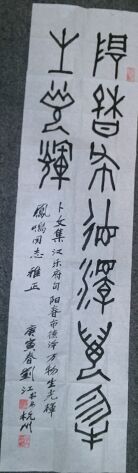 陽春布德澤萬物
生光輝
卜文集汉乐府句 阳春布德泽万物生光辉
同志雅正
庚寅春劉江书于杭州